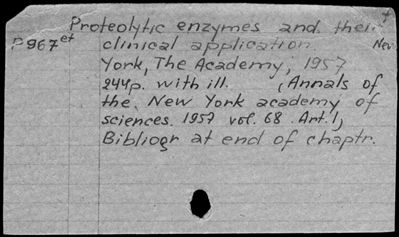 Proteolytic enzymes and their
P967et clinical application. New
York, The Academy, 1957
244p. with ill. (Annals of
the New York academy of
sciences. 1957 vol. 68. Art. 1)
Bibliogr at end of chaptr.